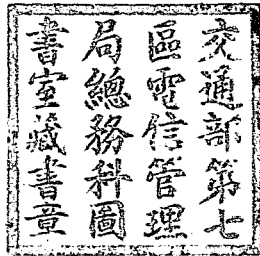 交通部第七
區電信管理
局總務科圖
書室藏書章